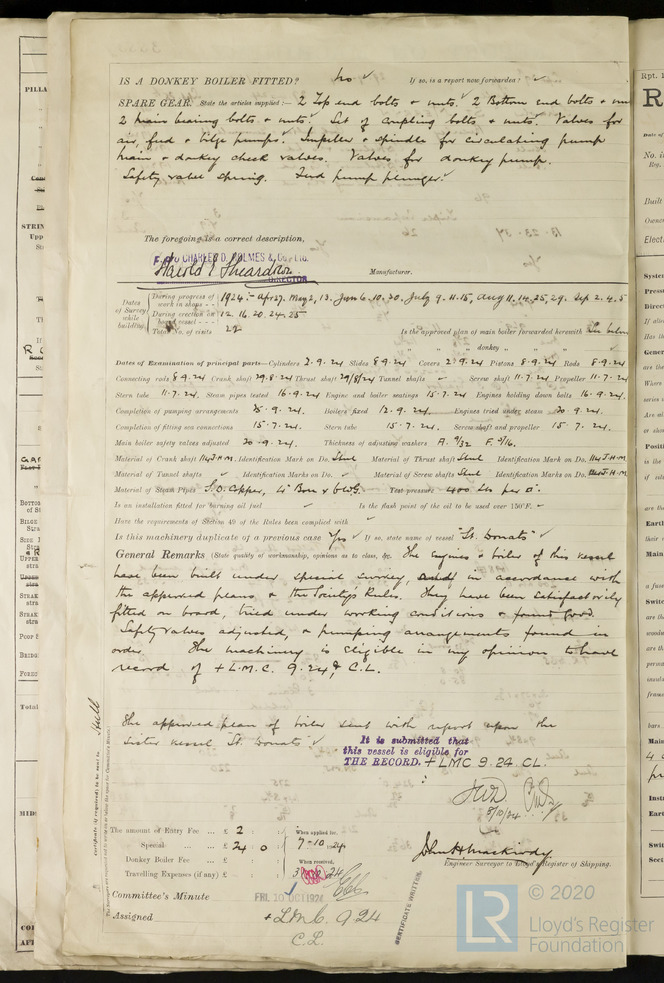 IS A DONKEY BOILER FITTED? No ✓ If so, is a report now forwarded? ✓
SPARE GEAR. State the articles supplied:— 2 Top end bolts & nuts. 2 Bottom end bolts & nuts
2 main bearing bolts & nuts. Set of coupling bolts & nuts. Valves for
air, feed & bilge pumps. Impeller & spindle for circulating pump
main & donkey check valves. Valves for donkey pump.
Safety valve spring. Feed pump plunger.
The foregoing is a correct description,
CHARLES D. HOLMES & Co., LTD.
Harold E Sheardown
DIRECTOR Manufacturer.
Dates of Survey while building
During progress of work in shops - - 1924:- Apr 29. May 2, 13. June 6. 10. 20. July 9. 11. 15, Aug 11. 14. 25, 29. Sep 2. 4. 5
During erection on board vessel - - - 12. 16. 20. 24. 25
Total No. of visits 22 Is the approved plan of main boiler forwarded herewith See below
" " " donkey " " "
Dates of Examination of principal parts—Cylinders 2.9.24 Slides 8.9.24 Covers 2.9.24 Pistons 8.9.24 Rods 8.9.24
Connecting rods 8.9.24 Crank shaft 29.8.24 Thrust shaft 29/8/24 Tunnel shafts ✓ Screw shaft 11.7.24 Propeller 11.7.24
Stern tube 11.7.24 Steam pipes tested 16.9.24 Engine and boiler seatings 15.7.24 Engines holding down bolts 16.9.24
Completion of pumping arrangements 25.9.24. Boilers fixed 12.9.24 Engines tried under steam 20.9.24
Completion of fitting sea connections 15.7.24 Stern tube 15.7.24. Screw shaft and propeller 15.7.24.
Main boiler safety valves adjusted 20.9.24 Thickness of adjusting washers A. 9/32 F. 5/16.
Material of Crank shaft Steel Identification Mark on Do. 114 J.H.M. Material of Thrust shaft Steel Identification Mark on Do. 114 J.H.M
Material of Tunnel shafts ✓ Identification Marks on Do. ✓ Material of Screw shafts Steel Identification Marks on Do. J.H.M
Material of Steam Pipes S.D. Copper, 4" Bore & 6 W.G. Test pressure 400 lbs per □".
Is an installation fitted for burning oil fuel ✓ Is the flash point of the oil to be used over 150°F. ✓
Have the requirements of Section 49 of the Rules been complied with ✓
Is this machinery duplicate of a previous case Yes ✓ If so, state name of vessel "St. Donats" ✓
General Remarks (State quality of workmanship, opinions as to class, &c. The Engines & boiler of this vessel
have been built under special survey in accordance with
the approved plans & the Society's Rules. They have been satisfactorily
fitted on board, tried under working conditions & found good.
Safety valves adjusted, & pumping arrangements found in
order. The machinery is eligible in my opinion to have
record of + L.M.C. 9.24 & C.L.
The approved plan of boiler sent with report upon the
sister vessel "St. Donats" ✓
It is submitted that
this vessel is eligible for
THE RECORD. + LMC 9.24 CL.
8/10/24
Hull
Certificate (if required) to be sent to
The amount of Entry Fee ... £ 2 : : When applied for,
Special ... £ 24 : 0 : 7-10-24
Donkey Boiler Fee ... £ : : When received,
Travelling Expenses (if any) £ : :
Engineer Surveyor to Lloyd's Register of Shipping.
Committee's Minute FRI. 10 OCT 1924
Assigned + L.M.C. 9.24
C.L.
CERTIFICATE WRITTEN.
LR
© 2020
Lloyd's Register
Foundation